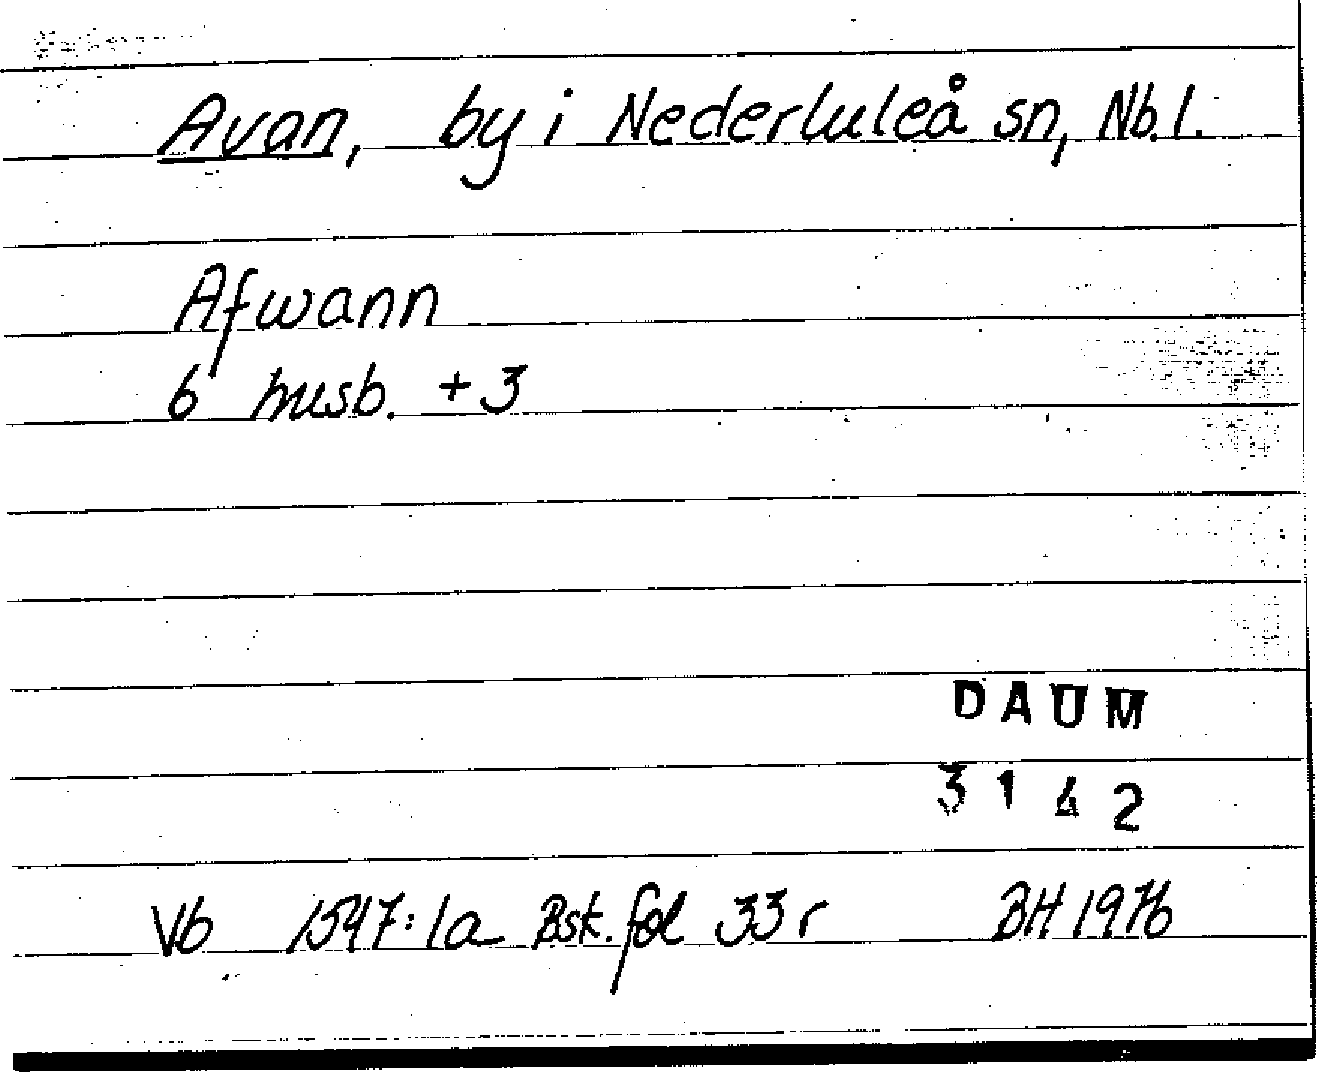 Avan, by i Nederluleå sn, Nb. l.
Afwann
6 husb. + 3
DAUM
3142
Vb 1547:1a Bsk. fol 33 r BH 1976